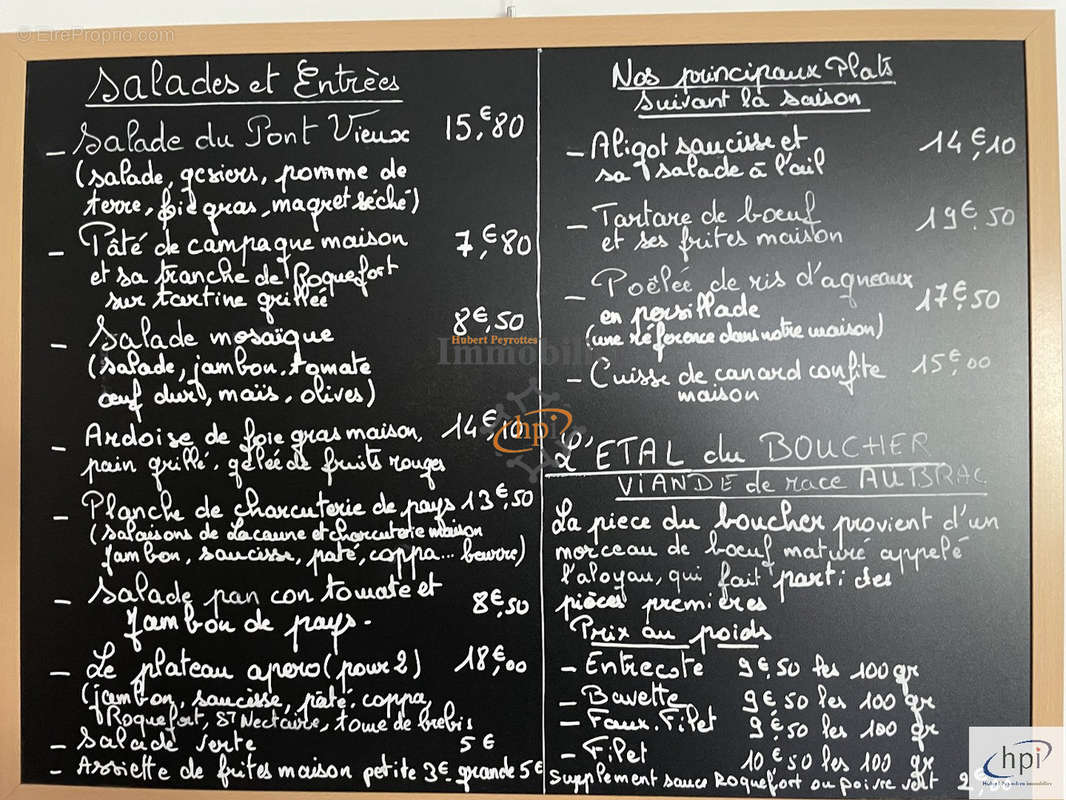 © EtreProprio.com
Salades et Entrèes
- Salade du Pont Vieux 15,€80
(salade, gesiers, pomme de
terre, foie gras, magret séché)
- Pâté de campagne maison 7,€80
et sa tranche de Roquefort
sur tartine grillée
- Salade mosaïque 8€,50
(salade, jambon, tomate
œuf dur, maïs, olives)
- Ardoise de foie gras maison, 14€,10
pain grillé, gelée de fruits rouges
- Planche de charcuterie de pays 13€,50
(salaisons de Lacaune et charcuterie maison
jambon, saucisse, paté, coppa... beurre)
- Salade pan con tomate et 8€,50
Jambon de pays.
- Le plateau apero (pour 2) 18€,00
(jambon, saucisse, pâté, coppa,
Roquefort, St Nectaire, tome de brebis
- Salade verte 5€
- Assiette de frites maison petite 3€ grande 5€
Nos principaux Plats
suivant la saison
- Aligot saucisse et 14€,10
sa salade à l'ail
- Tartare de bœuf 19€,50
et ses frites maison
- Poëlée de ris d'agneaux 17€,50
en persillade
(une référence dans notre maison)
- Cuisse de canard confite 15€,00
maison
L'ETAL du BOUCHER
VIANDE de race AUBRAC
La piece du boucher provient d'un
morceau de bœuf maturé appelé
l'aloyau, qui fait parti des
pièces premieres
Prix au poids
- Entrecote 9€,50 les 100 gr
- Bavette 9€,50 les 100 gr
- Faux.Filet 9€,50 les 100 gr
- Filet 10€50 les 100 gr
Supplement sauce Roquefort ou poivre vert
Hubert Peyrottes
Immobilier
hpi
hpi
Hubert Peyrottes immobilier